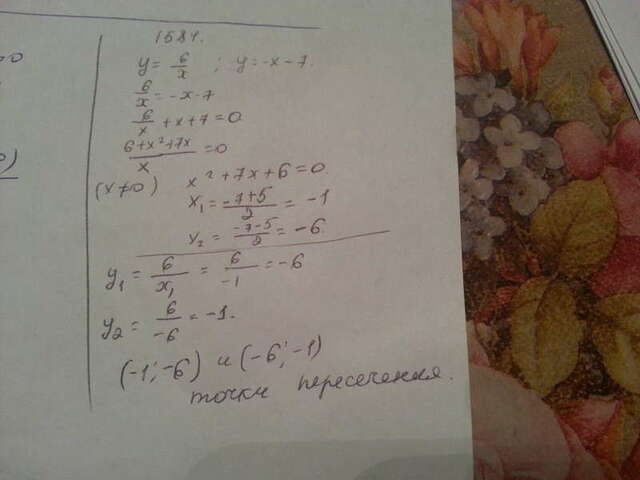 1581.
y = 6/x ; y = -x - 7.
6/x = -x - 7
6/x + x + 7 = 0
(6 + x² + 7x)/x = 0
(x ≠ 0) x² + 7x + 6 = 0.
x₁ = (-7+5)/2 = -1
x₂ = (-7-5)/2 = -6.
y₁ = 6/x₁ = 6/-1 = -6
y₂ = 6/-6 = -1.
(-1; -6) и (-6; -1)
точки пересечения.